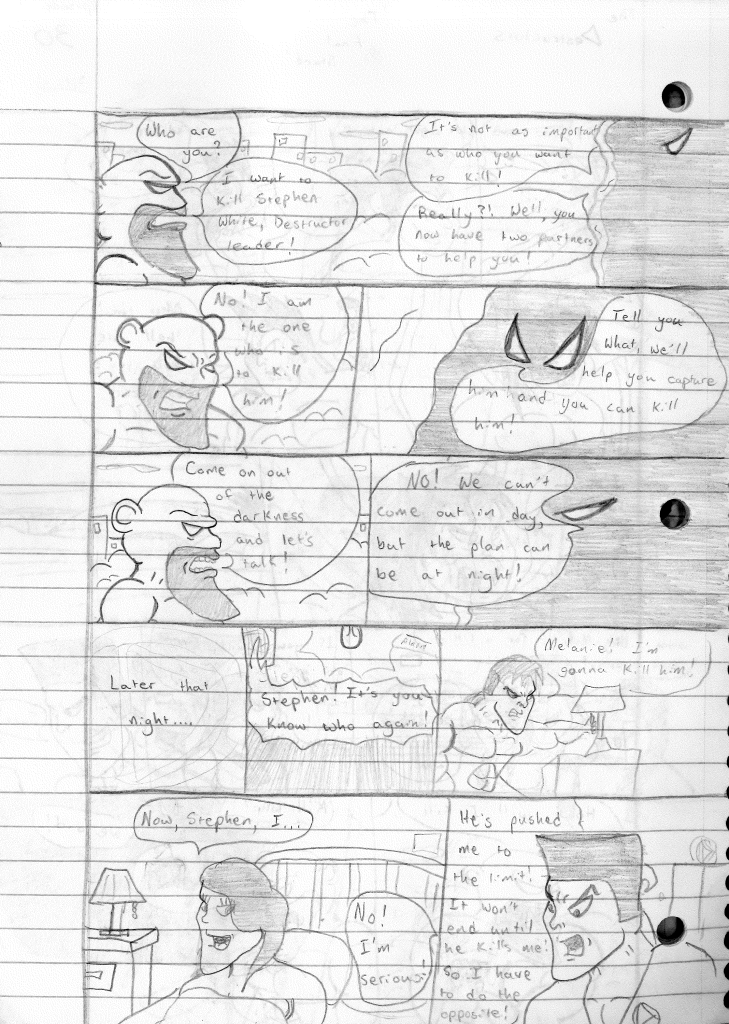 Who are
you?
I want to
Kill Stephen
White, Destructor
leader!
It's not as important
as who you want
to Kill!
Really?! Well, you
now have two partners
to help you!
No! I am
the one
who is
to Kill
him!
Tell you
What, we'll
help you capture
him and you can Kill
him!
Come on out
of the
darkness
and let's
talk!
NO! We can't
come out in day,
but the plan can
be at night!
Later that
night....
Stephen! It's you
Know who again!
Melanie! I'm
gonna Kill him!
Now, Stephen, I...
No!
I'm
serious!
He's pushed
me to
the limit!
It won't
end until
he Kills me!
So I have
to do the
opposite!